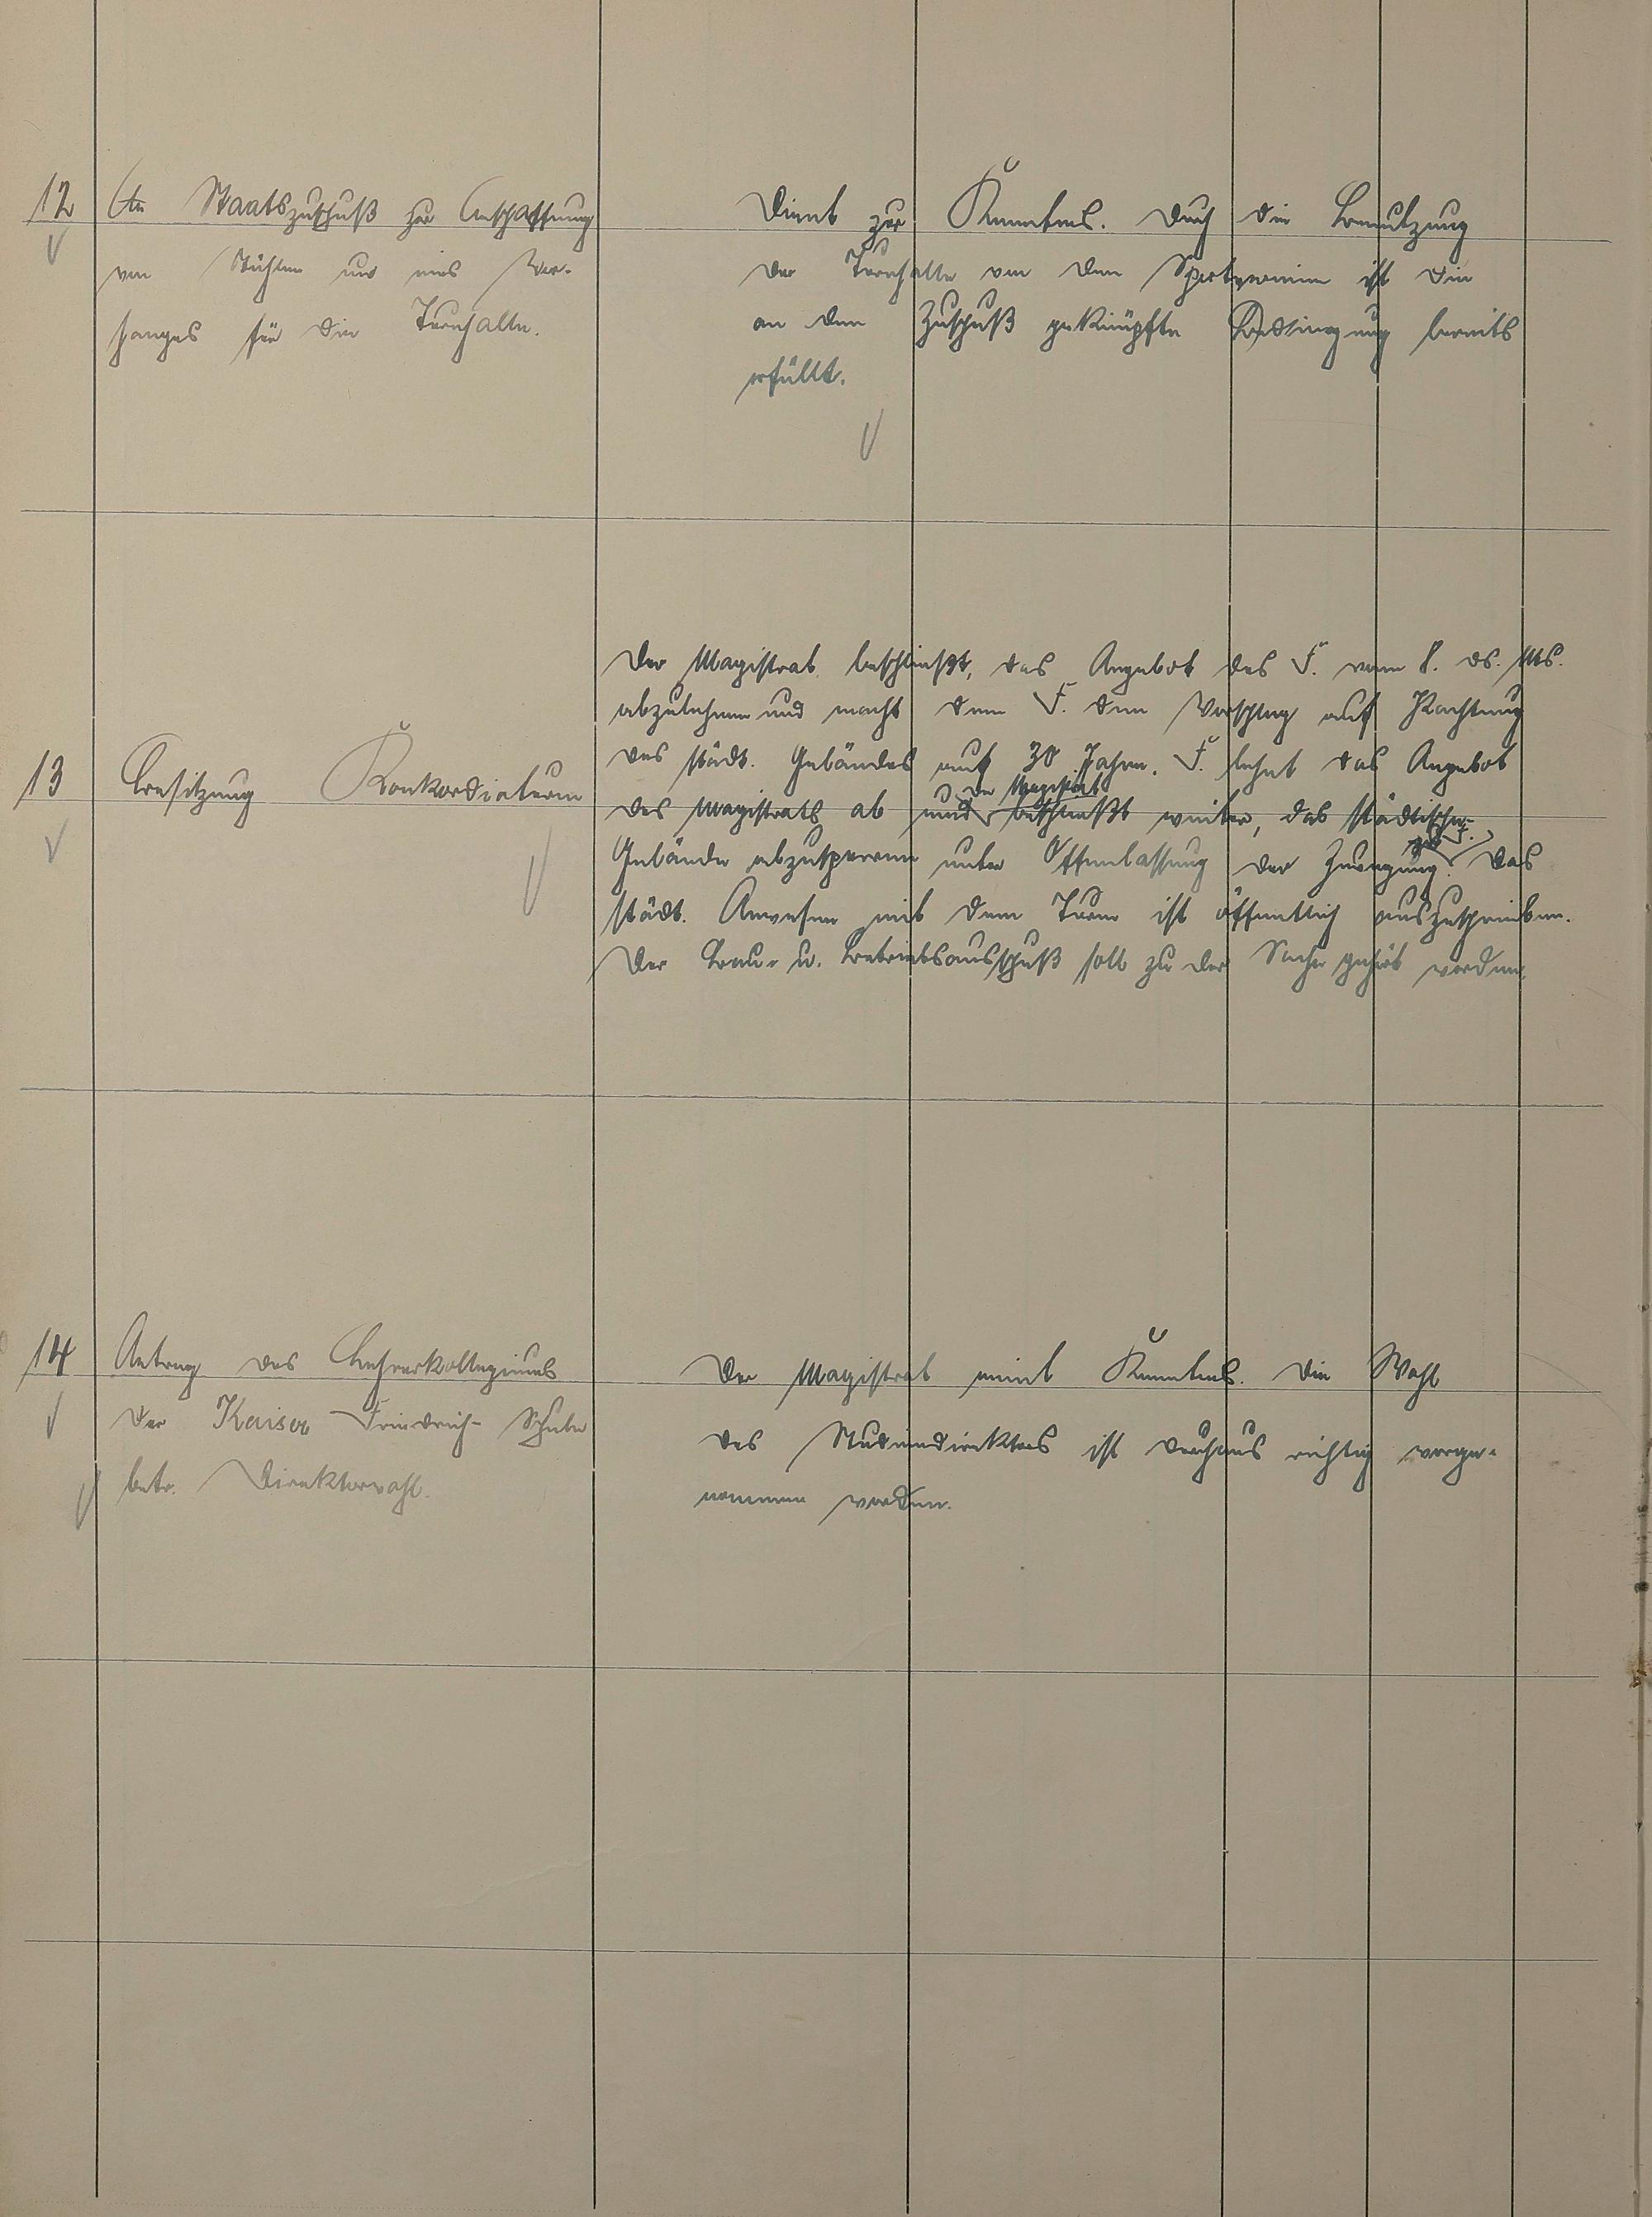 12
An Staatszuschuß zur Anschaffung
von Stühlen und eines Vor-
hanges für die Turnhalle.
Dient zur Kenntnis. Durch die Benutzung
der Turnhalle von den Sportvereinen ist die
an den Zuschuß geknüpfte Bedingung bereits
erfüllt.
13
Besitzung Konkordiaturm
Der Magistrat beschließt, das Angebot des F. vom 8. ds. Mts.
abzulehnen und macht dem F. den Vorschlag auf Pachtung
des städt. Gebäudes auf 30 Jahre. F. lehnt das Angebot
der Magistrat
des Magistrats ab und beschließt weiter, das städtische
Gebäude abzusperren unter Offenlassung der Zuwegung. Das
städt. Anwesen mit dem Turm ist öffentlich auszuschreiben.
Der Bau- u. Betriebsausschuß soll zu der Sache gehört werden.
14
Antrag des Lehrerkollegiums
der Kaiser Friedrich-Schule
betr. Direktorwahl.
Der Magistrat nimt Kenntnis. Die Wahl
des Studiendirektors ist durchaus richtig vorge-
nommen worden.